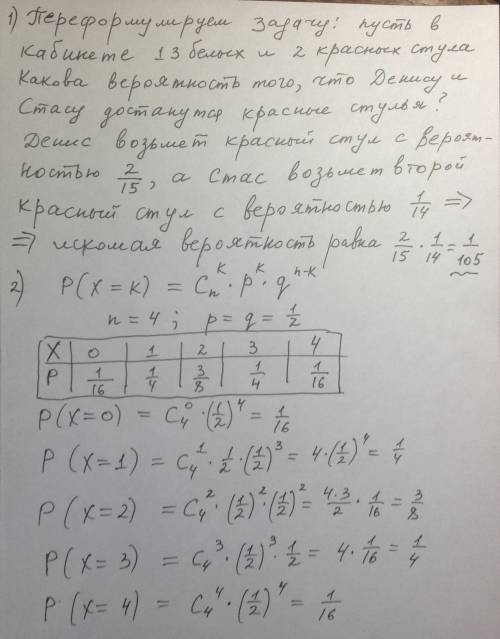 1) Переформулируем задачу: пусть в
кабинете 13 белых и 2 красных стула
Какова вероятность того, что Денису и
Стасу достанутся красные стулья?
Денис возьмет красный стул с вероят-
ностью 2/15, а Стас возьмет второй
красный стул с вероятностью 1/14 =>
=> искомая вероятность равна 2/15 · 1/14 = 1/105
2) P(X=k) = C_n^k · p^k · q^(n-k)
n = 4 ; p = q = 1/2
X | 0 | 1 | 2 | 3 | 4
P | 1/16 | 1/4 | 3/8 | 1/4 | 1/16
P(X=0) = C_4^0 · (1/2)^4 = 1/16
P(X=1) = C_4^1 · 1/2 · (1/2)^3 = 4 · (1/2)^4 = 1/4
P(X=2) = C_4^2 · (1/2)^2 · (1/2)^2 = 4·3/2 · 1/16 = 3/8
P(X=3) = C_4^3 · (1/2)^3 · 1/2 = 4 · 1/16 = 1/4
P(X=4) = C_4^4 · (1/2)^4 = 1/16